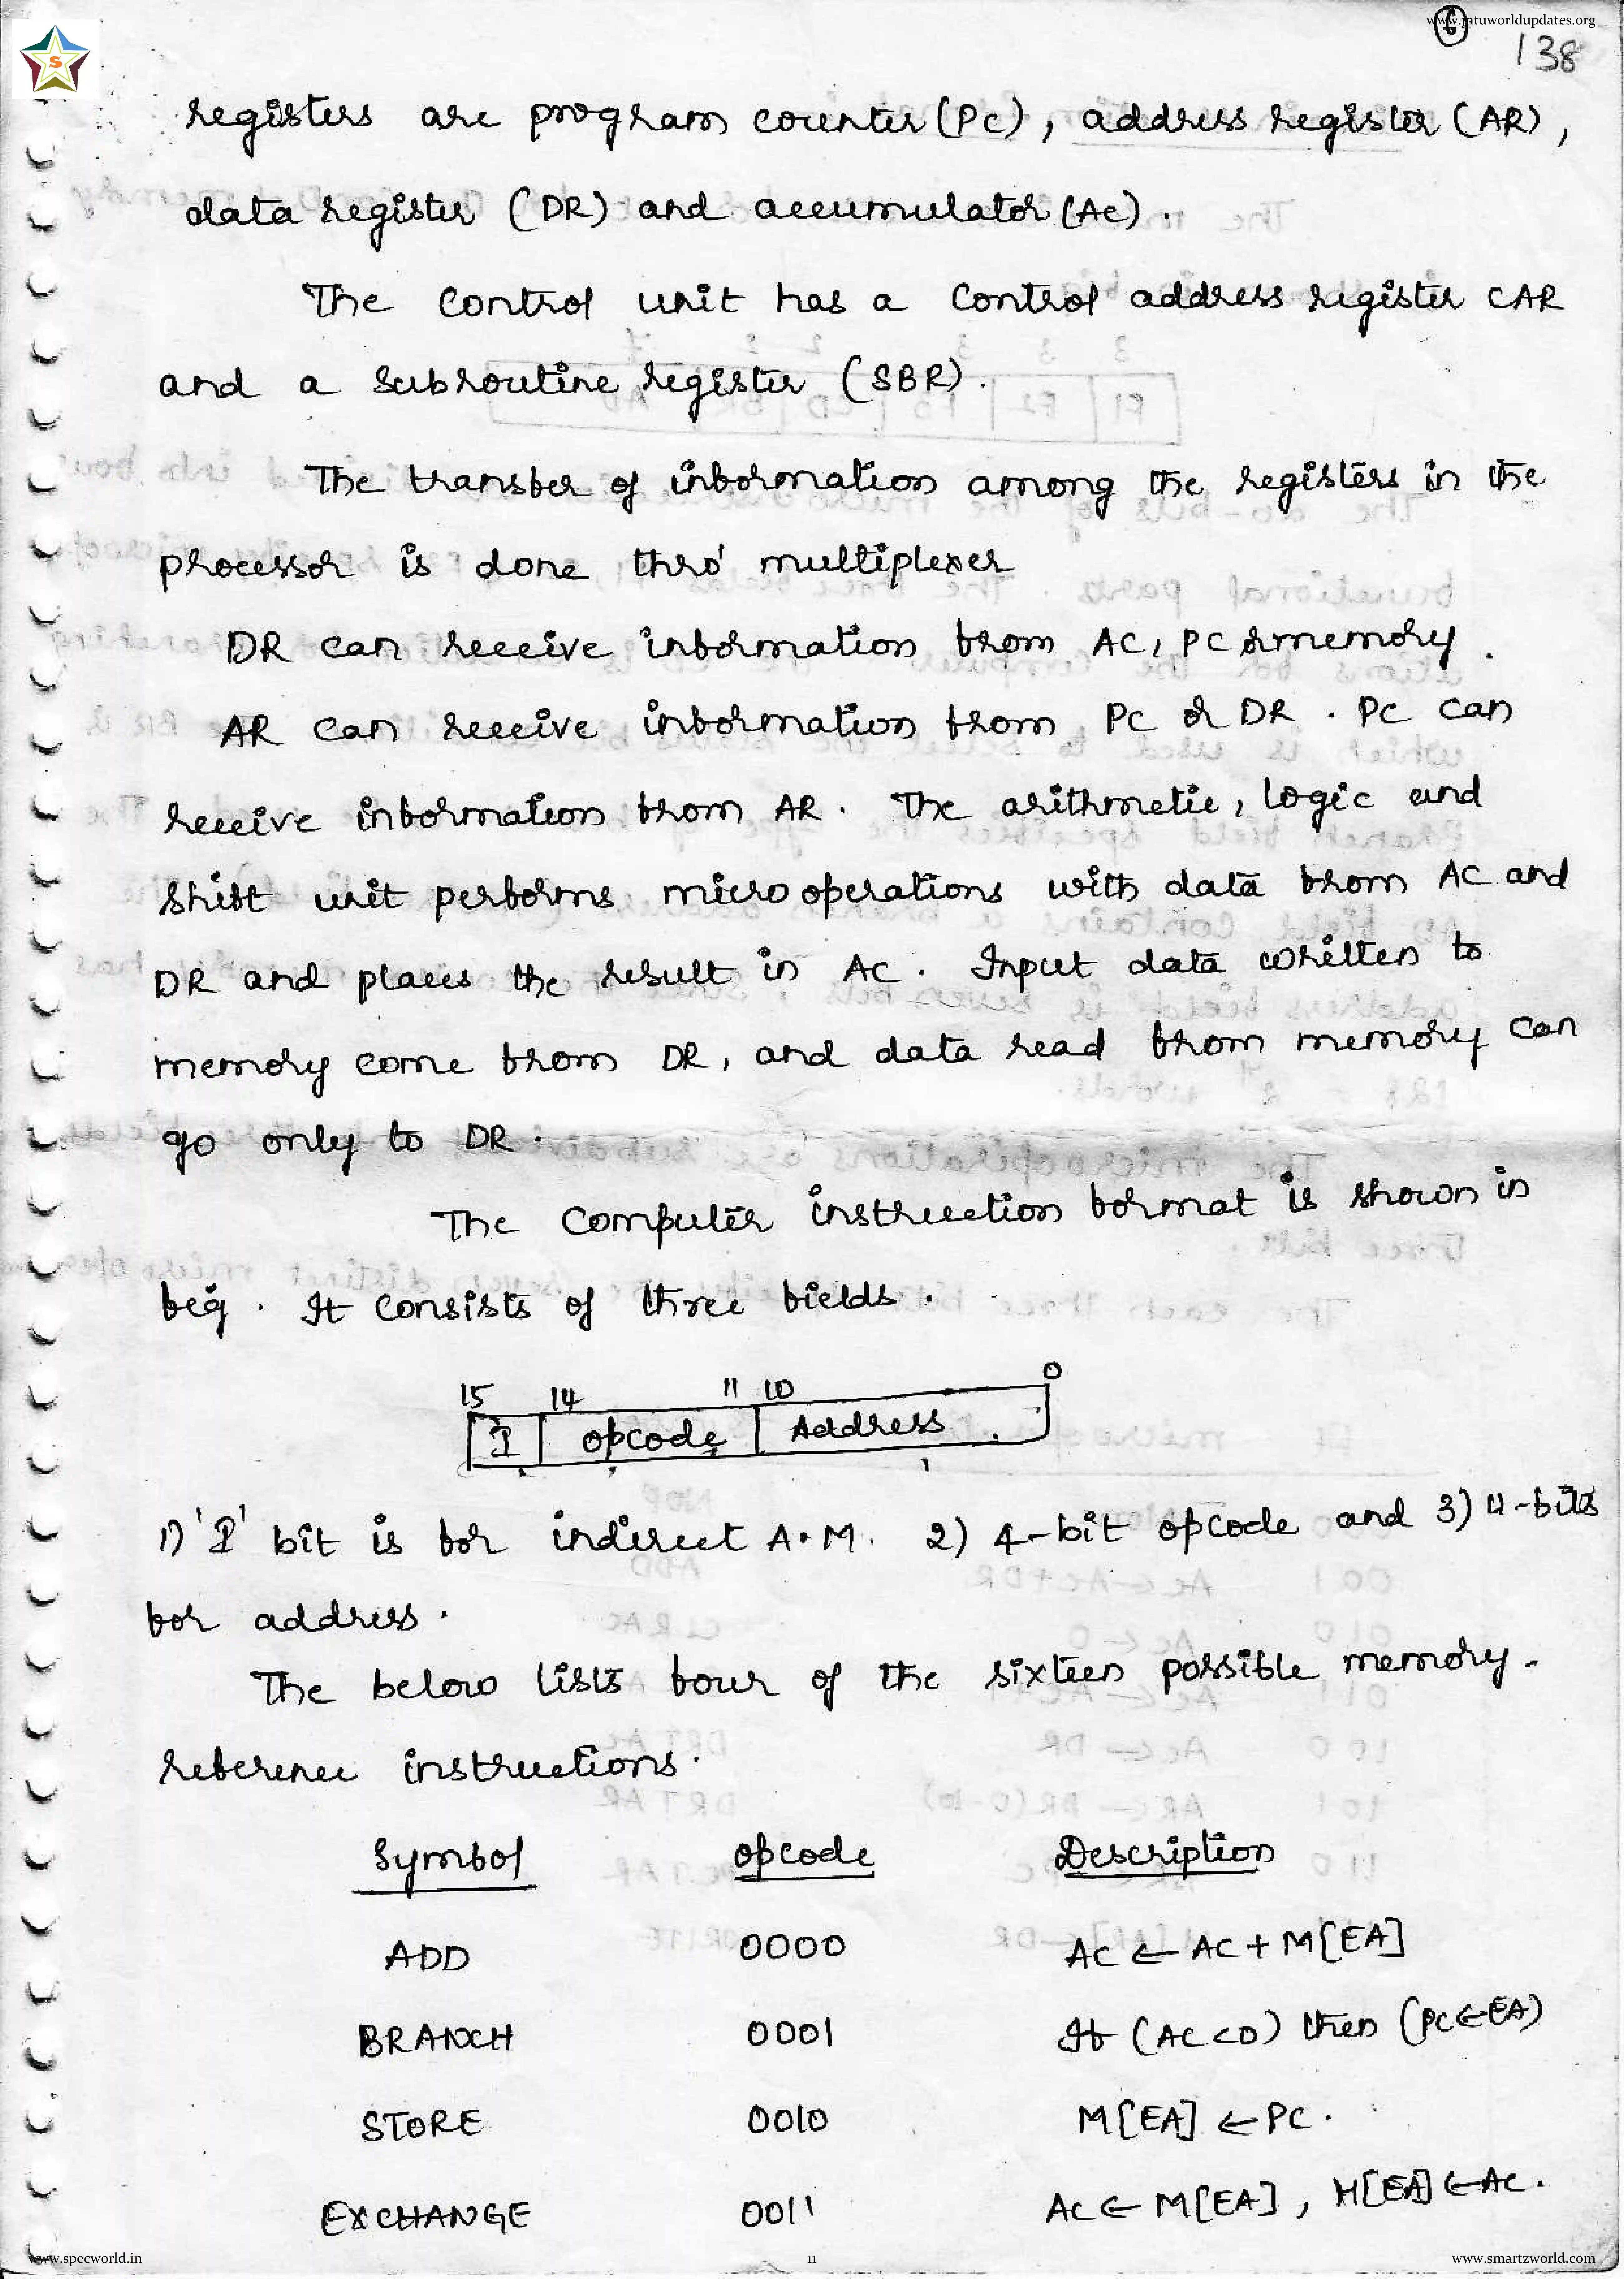 www.jntuworldupdates.org
6
138
S
registers are program counter (PC), address register (AR),
data register (DR) and accumulator (AC).
The control unit has a control address register CAR
and a subroutine register (SBR).
The transfer of information among the registers in the
processor is done thro' multiplexer
DR can receive information from AC, PC or memory.
AR can receive information from PC or DR. PC can
receive information from AR. The arithmetic, logic and
shift unit performs micro operations with data from AC and
DR and places the result in AC. Input data written to
memory come from DR, and data read from memory can
go only to DR.
The computer instruction format is shown in
feg. It consists of three fields.
15 14 11 10 0
I opcode Address
1) 'I' bit is for indirect A.M. 2) 4-bit opcode and 3) 11-bits
for address.
The below lists four of the sixteen possible memory-
reference instructions.
Symbol opcode Description
ADD 0000 AC ← AC + M[EA]
BRANCH 0001 If (AC<0) then (PC←EA)
STORE 0010 M[EA] ← PC.
EXCHANGE 0011 AC ← M[EA], M[EA] ← AC.
www.specworld.in 11 www.smartzworld.com